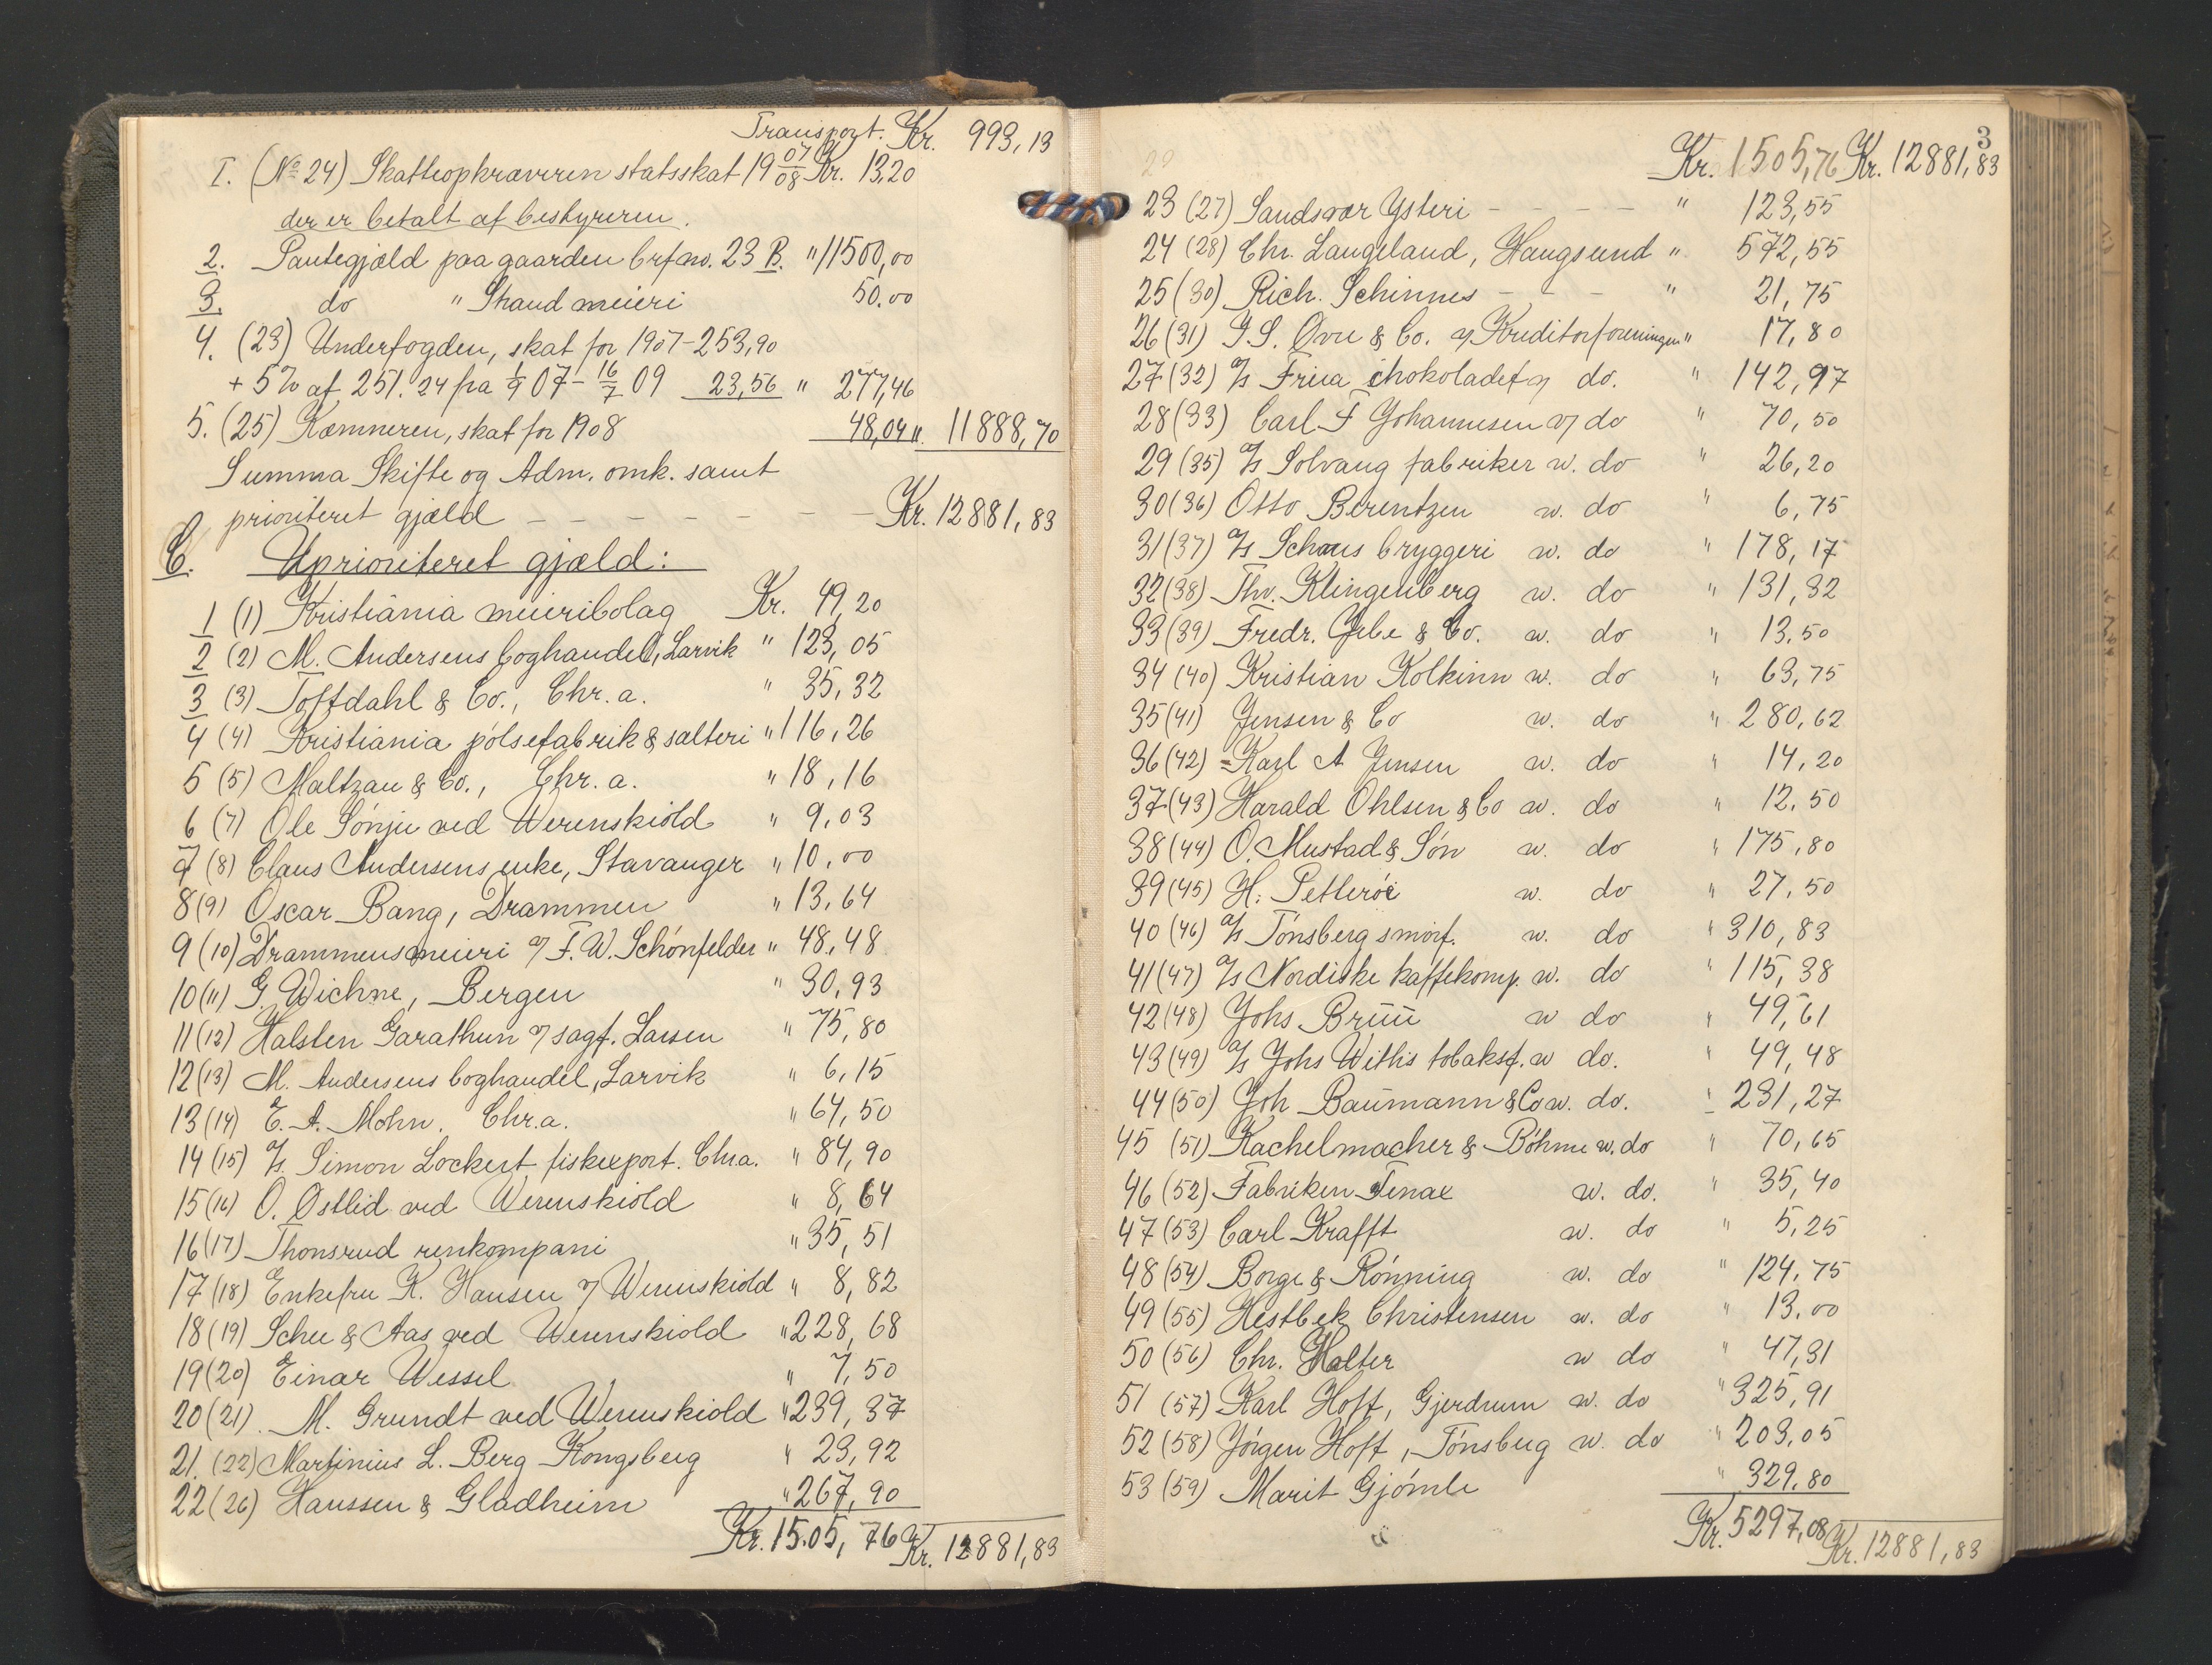 Transport. Kr. 993,13
I. (No 24) Skatteopkræveren statsskat 19 07/08 Kr. 13,20
der er betalt af bestyreren.
2. Pantegjæld paa gaarden brfno. 23 B. " 11500,00
3. do " Strand meieri 50.00
4. (23) Underfogden, skat for 1907 - 253,90
+ 5% af 251.24 fra 1/9 07 - 16/7 09 23,56 " 277,46
5. (25) Kæmneren, skat for 1908 48,04 ". 11888,70
Summa Skifte og Adm. omk. samt
prioriteret gjæld - - - - - - - Kr. 12881,83
C. Uprioriteret gjæld:
1 (1) Kristiania meieribolag Kr. 49,20
2 (2) M. Andersens boghandel, Larvik " 123,05
3 (3) Toftdahl & Co., Chr.a. " 35,32
4 (4) Kristiania pölsefabrik & salteri " 116,26
5 (5) Maltzau & Co., Chr.a. " 18,16
6 (7) Ole Sönju ved Werenskiold " 9,03
7 (8) Claus Andersens enke, Stavanger " 10.00
8 (9) Oscar Bang, Drammen " 13,64
9 (10) Drammensmeieri v/ F. W. Schönfelder " 48,48
10 (11) G. Wichne, Bergen " 30,93
11 (12) Halsten Garathun v/ sagf. Larsen " 75,80
12 (13) M. Andersens boghandel, Larvik " 6,15
13 (14) E. A. Mohn. Chr.a. " 64,50
14 (15) A/s. Simon Lockert fiskexport. Chra. " 84,90
15 (16) O. Østlid ved Werenskiold " 8,64
16 (17) Thonsrud renkompani " 35,51
17 (18) Enkefru K. Hansen v/ Werenskiold " 8,82
18 (19) Schee & Aas ved Werenskiold " 228,68
19 (20) Einar Wessel " 7,50
20 (21). M. Grundt ved Werenskiold " 239,37
21. (22) Martinius L. Berg Kongsberg " 23,92
22 (26) Hanssen & Gladheim " 267,90
Kr. 15.05,76 Kr. 12881,83
3
Kr. 1505,76 Kr. 12881,83
23 (27) Sandsvær Ysteri - - - - " 123,55
24 (28) Chr. Langeland, Haugsund " 572,55
25 (30) Rich. Schinnes - - - " 21,75
26 (31) J. S. Øvre & Co. v/ Kreditorforeningen " 17,80
27 (32) A/s Freia chokoladef v/ do. " 142,97
28 (33) Carl F Johannesen v/ do " 70,50
29 (35) A/s Solvang fabriker w. do " 26,20
30 (36) Otto Berentzen w. do " 6,75
31 (37) A/s Schous bryggeri w. do " 178,17
32 (38) Thv. Klingenberg w. do " 131,32
33 (39) Fredr. Grbe & Co. w. do " 13,50
34 (40) Kristian Kolkinn w. do " 63,75
35 (41) Jensen & Co w. do " 280,62
36 (42) Karl A Jensen w. do " 14,20
37 (43) Harald Ohlsen & Co w. do " 12,50
38 (44) O. Mustad & Sön w. do " 175,80
39 (45) H. Petteröe w. do " 27,50
40 (46) A/s Tönsberg smörf. w. do " 310,83
41 (47) A/s Nordiske kaffekomp. w. do " 115,38
42 (48) Johs Bruu w do " 49,61
43 (49) A/s Johs Withs tobaksf. w do. " 49,48
44 (50) Joh Baumann & Co w. do. " 231,27
45 (51) Kachelmacher & Böhme w. do " 70,65
46 (52) Fabriken Tenax w. do. " 35,40
47 (53) Carl Krafft w. do " 5,25
48 (54) Borge & Rönning w. do " 124,75
49 (55) Hestbek Christensen w. do " 13.00
50 (56) Chr. Holter w do " 47,31
51 (57) Karl Hoft, Gjerdrum w. do " 325,91
52 (58) Jörgen Hoft, Tönsberg w. do " 203,05
53 (59) Marit Gjömle " 329,80
Kr. 5297,08 Kr. 12881,83